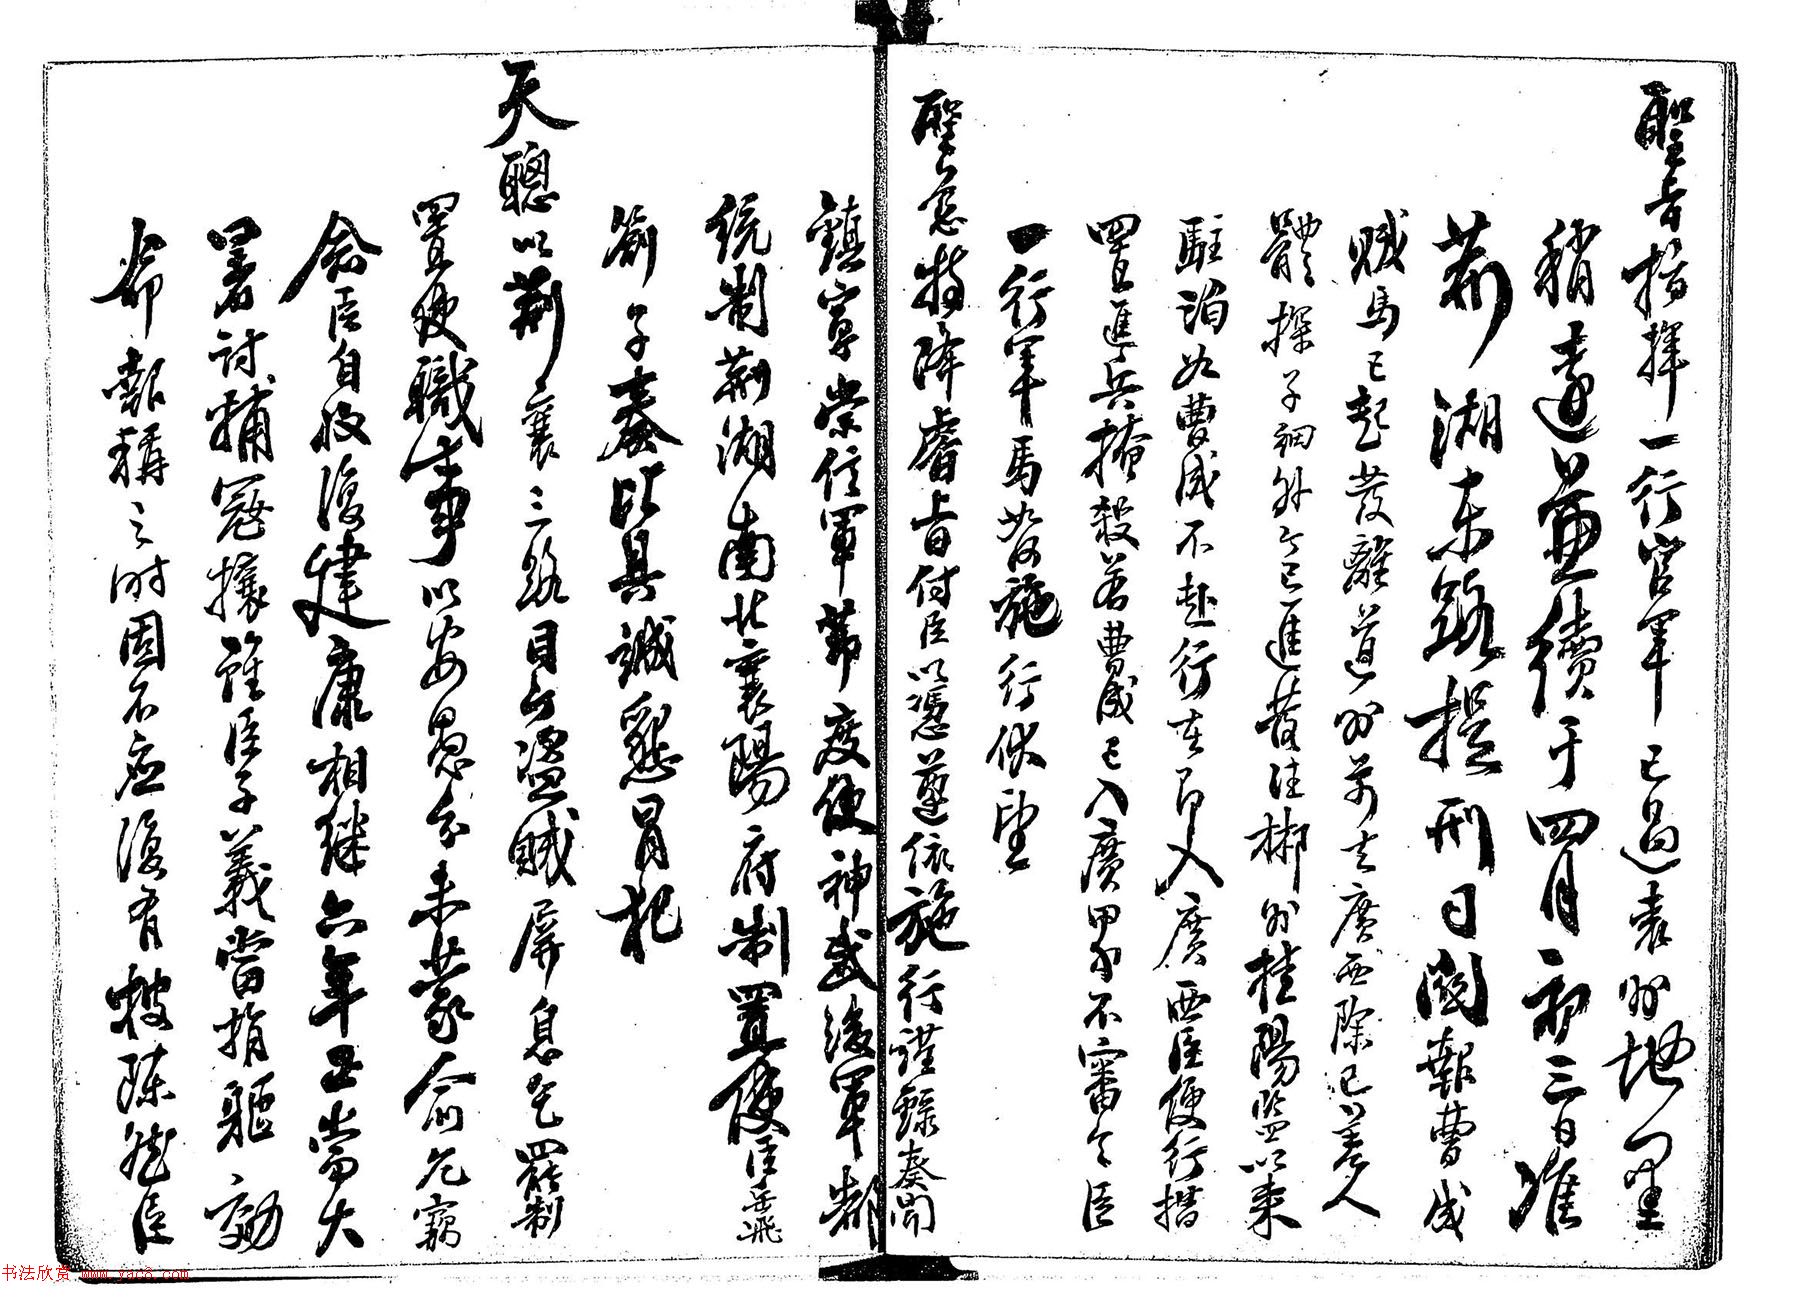 聖旨指揮一行官軍已過袁州地里
稍遠並續于四月初三日准
荊湖東路提刑司關報曹成
賊馬已起發離道州前去廣西除已差人
體探子細外今已進發往郴州桂陽監以來
駐泊如曹成不赴行在即入廣西臣便行措
置進兵掩殺若曹成已入廣界分不審令臣
一行軍馬如何施行伏望
聖慈特降睿旨付臣以憑遵依施行謹錄奏聞
鎮寧崇信軍節度使神武後軍都
統制荊湖南北襄陽府制置使臣岳飛
劄子奏比具誠懇冒犯
天聰以荊襄三路目今盜賊屏息乞罷制
置使職事以安愚分未蒙俞允竊
念臣自收復建康相繼六年正當大
暑討捕寇攘雖臣子義當捐軀効
命報稱之時固不應復有辭陳然臣
书法欣赏 www.yac8.com